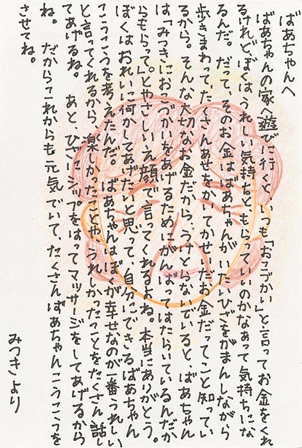 ばあちゃんへ
ばあちゃんの家へ遊びに行くと、いつも「おこづかい」と言ってお金をくれ
るけれどぼくは、うれしい気持ちともらっていいのかなあって気持ちにな
るんだ。だって、そのお金はばあちゃんがいたいひざをがまんしながら
歩きまわってたくさんあせをかいてかせいだお金だってこと知ってい
るから。そんな大切なお金だから、うけとらないでいると、ばあちゃん
は「みつきにおこづかいをあげるためにがんばってはたらいているんだか
らもらって」とやさしいえ顔で言ってくれるよね。本当にありがとう。
ぼくはおれいに何かしてあげたいと思って、自分にできるばあちゃん
こうこうを考えたんだ。ばあちゃんはぼくが幸せなのが一番うれしい
と言ってくれるから、楽しかったことや、うれしかったことをたくさん話し
てあげるね。あと、ひざにシップをはってマッサージをしてあげるから
ね。だからこれからも元気でいて、たくさんばあちゃんこうこうを
させてね。
みつきより